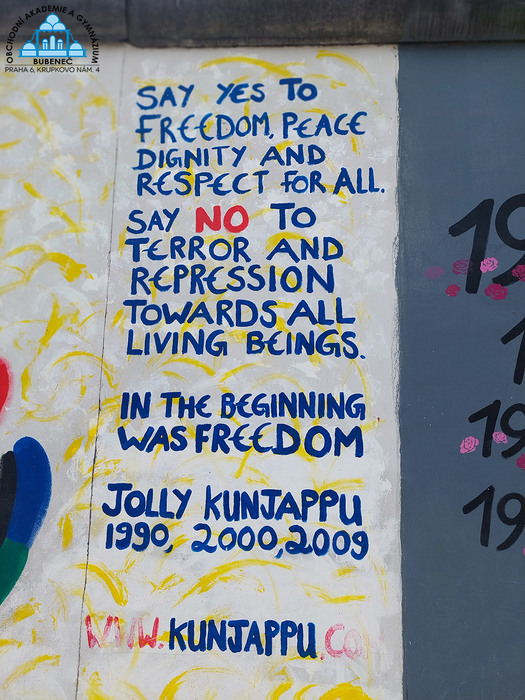 OBCHODNÍ AKADEMIE A GYMNÁZIUM
BUBENEČ
PRAHA 6, KRUPKOVO NÁM. 4
SAY YES TO
FREEDOM, PEACE
DIGNITY AND
RESPECT FOR ALL.
SAY NO TO
TERROR AND
REPRESSION
TOWARDS ALL
LIVING BEINGS.
IN THE BEGINNING
WAS FREEDOM
JOLLY KUNJAPPU
1990, 2000, 2009
WWW.KUNJAPPU.CO